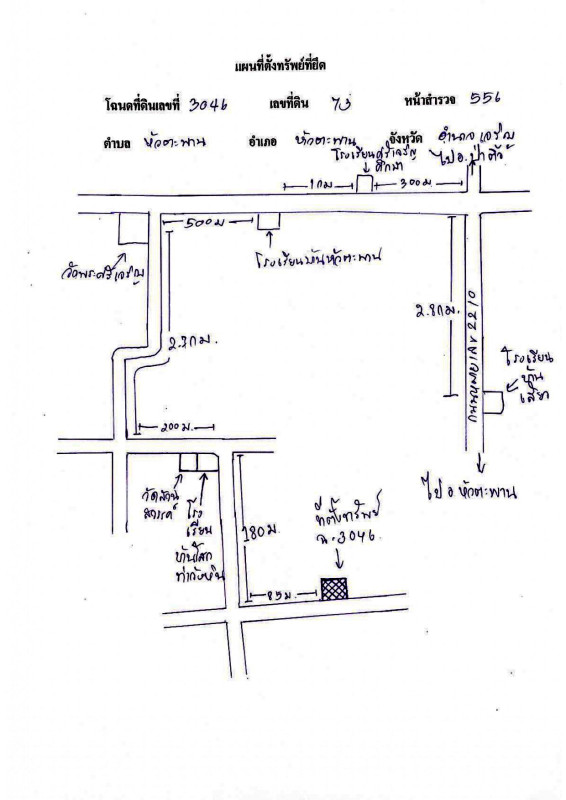 แผนที่ตั้งทรัพย์ที่ยึด
โฉนดที่ดินเลขที่ 3046 เลขที่ดิน 73 หน้าสำรวจ 556
ตำบล หัวตะพาน อำเภอ หัวตะพาน จังหวัด อำนาจเจริญ
โรงเรียนศรีเจริญ
ศึกษา
ไป อ. ป่าติ้ว
1 กม.
300 ม.
500 ม.
วัดพระศรีเจริญ
โรงเรียนบ้านหัวตะพาน
2.3 กม.
2.8 กม.
ถนนหมายเลข 2210
โรงเรียน
บ้าน
เสียว
200 ม.
ไป อ. หัวตะพาน
วัดสวน
สวรรค์
โรง
เรียน
บ้านโสก
ท่าวังหิน
180 ม.
ที่ตั้งทรัพย์
ฉ. 3046
85 ม.